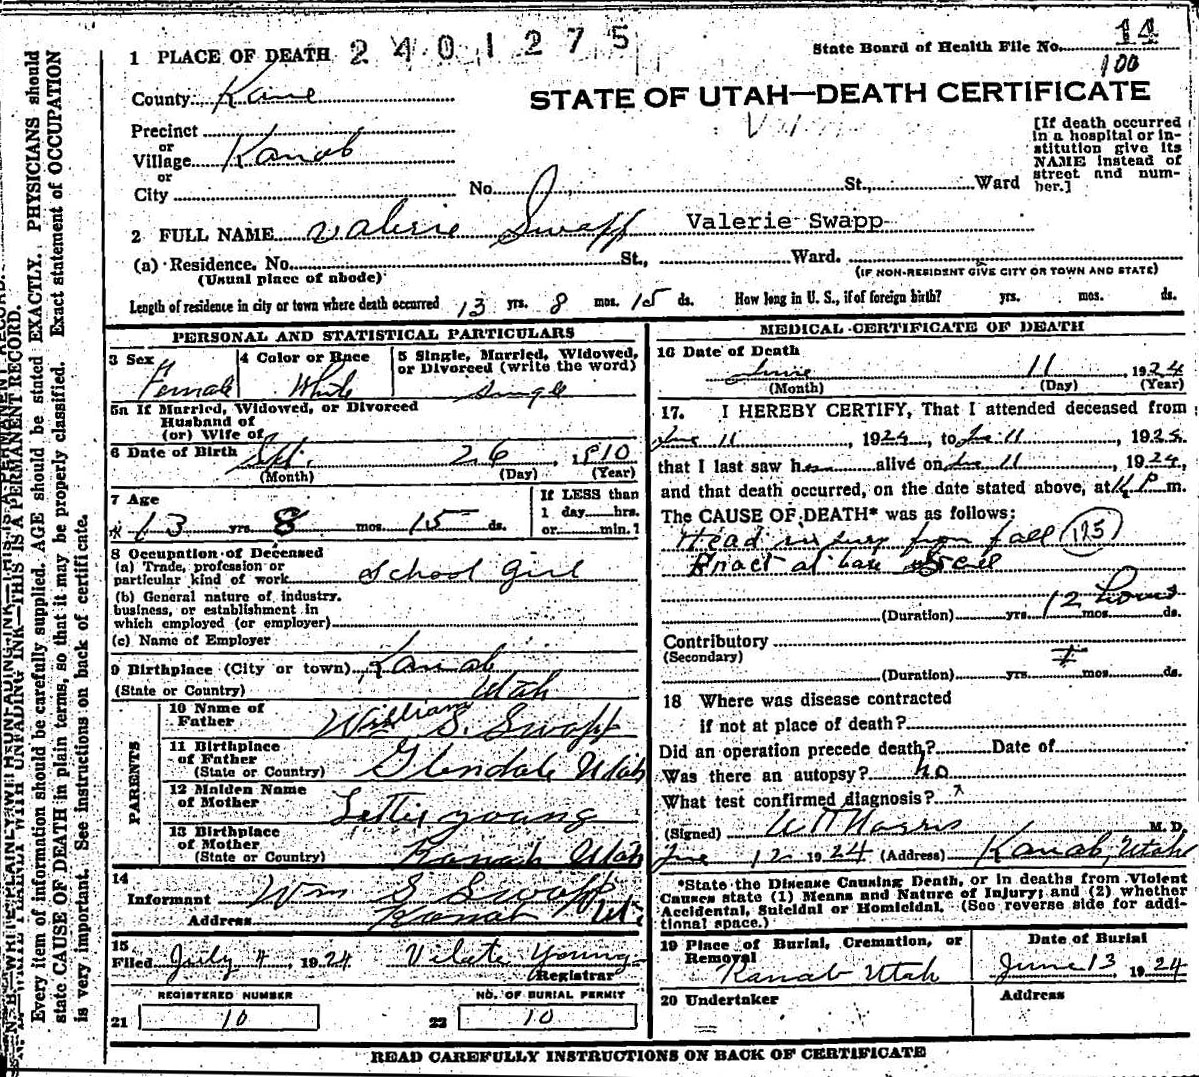 1 PLACE OF DEATH 2401275
State Board of Health File No. 14
100
County Kane
STATE OF UTAH—DEATH CERTIFICATE
Precinct
or
Village Kanab
or
City
No. St., Ward
[If death occurred
in a hospital or in-
stitution give its
NAME instead of
street and num-
ber.]
2 FULL NAME Valerie Swapp Valerie Swapp
(a) Residence, No. St., Ward.
(Usual place of abode)
(IF NON-RESIDENT GIVE CITY OR TOWN AND STATE)
Length of residence in city or town where death occurred 13 yrs. 8 mos. 15 ds. How long in U. S., if of foreign birth? yrs. mos. ds.
PERSONAL AND STATISTICAL PARTICULARS
3 Sex
Female
4 Color or Race
White
5 Single, Married, Widowed,
or Divorced (write the word)
Single
5a If Married, Widowed, or Divorced
Husband of
(or) Wife of
6 Date of Birth Sept. 26, 1910
(Month) (Day) (Year)
7 Age
13 yrs. 8 mos. 15 ds.
If LESS than
1 day hrs.
or min.?
8 Occupation of Deceased
(a) Trade, profession or
particular kind of work School girl
(b) General nature of industry,
business, or establishment in
which employed (or employer)
(c) Name of Employer
9 Birthplace (City or town) Kanab
(State or Country) Utah
PARENTS
10 Name of
Father William S. Swapp
11 Birthplace
of Father
(State or Country) Glendale Utah
12 Maiden Name
of Mother Lettie Young
13 Birthplace
of Mother
(State or Country) Kanab Utah
14
Informant Wm S Swapp
Address Kanab Ut.
15
Filed July 4, 1924 Vilate Young
Registrar
REGISTERED NUMBER
21 10
NO. OF BURIAL PERMIT
22 10
MEDICAL CERTIFICATE OF DEATH
16 Date of Death
June 11 1924
(Month) (Day) (Year)
17. I HEREBY CERTIFY, That I attended deceased from
June 11, 1924, to June 11, 1924
that I last saw her alive on June 11, 1924,
and that death occurred, on the date stated above, at P m.
The CAUSE OF DEATH* was as follows:
Head injury from fall 185
at base
12 hours
(Duration) yrs. mos. ds.
Contributory
(Secondary)
(Duration) yrs. mos. ds.
18 Where was disease contracted
if not at place of death?
Did an operation precede death? Date of
Was there an autopsy? no
What test confirmed diagnosis?
(Signed) Norris M. D.
June 12 1924 (Address) Kanab, Utah
*State the Disease Causing Death, or in deaths from Violent
Causes state (1) Means and Nature of Injury; and (2) whether
Accidental, Suicidal or Homicidal. (See reverse side for addi-
tional space.)
19 Place of Burial, Cremation, or
Removal
Kanab Utah
Date of Burial
June 13 1924
20 Undertaker
Address
READ CAREFULLY INSTRUCTIONS ON BACK OF CERTIFICATE
Every item of information should be carefully supplied. AGE should be stated EXACTLY. PHYSICIANS should
state CAUSE OF DEATH in plain terms, so that it may be properly classified. Exact statement of OCCUPATION
is very important. See instructions on back of certificate.